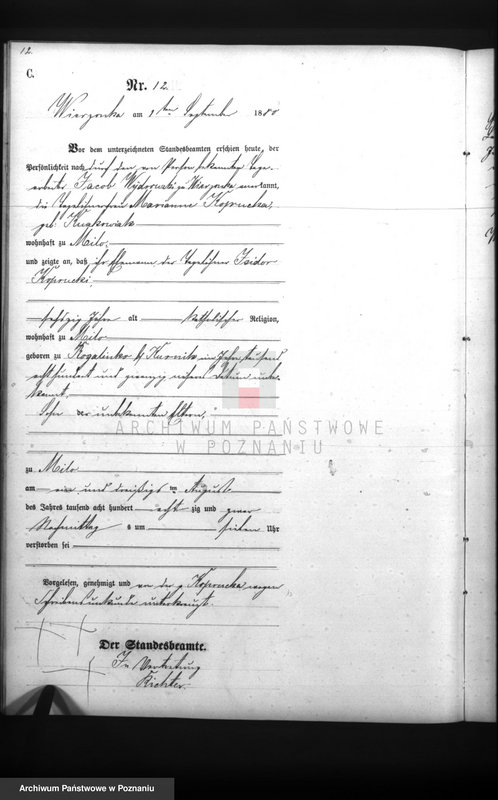 12.
C.
Nr. 12.
Wierzonka am 1ten September 1880
Vor dem unterzeichneten Standesbeamten erschien heute, der
Persönlichkeit nach durch den von Person bekannten Tage-
arbeiter Jacob Wydrowski zu Wierzonka anerkannt,
die Tagelöhnerfrau Marianne Koprucka,
geb.
wohnhaft zu Milo,
und zeigte an, daß ihr Ehemann der Tagelöhner Isidor
Koprucki,
sechszig Jahre alt katholischer Religion,
wohnhaft zu Milo
geboren zu Rogalinko b/ Kurnik im Jahre tausend
acht hundert und zwanzig nähere Datum unbe-
kannt,
Sohn der unbekannten Eltern,
ARCHIWUM PAŃSTWOWE
W POZNANIU
zu Milo
am ein und dreißigsten August
des Jahres tausend acht hundert acht zig und zwar
Nachmittag s um sieben Uhr
verstorben sei
Vorgelesen, genehmigt und von der p. Koprucka wegen
Schreibensunkunde unterkreuzt.
Der Standesbeamte.
In Vertretung
Richter.
Archiwum Państwowe w Poznaniu